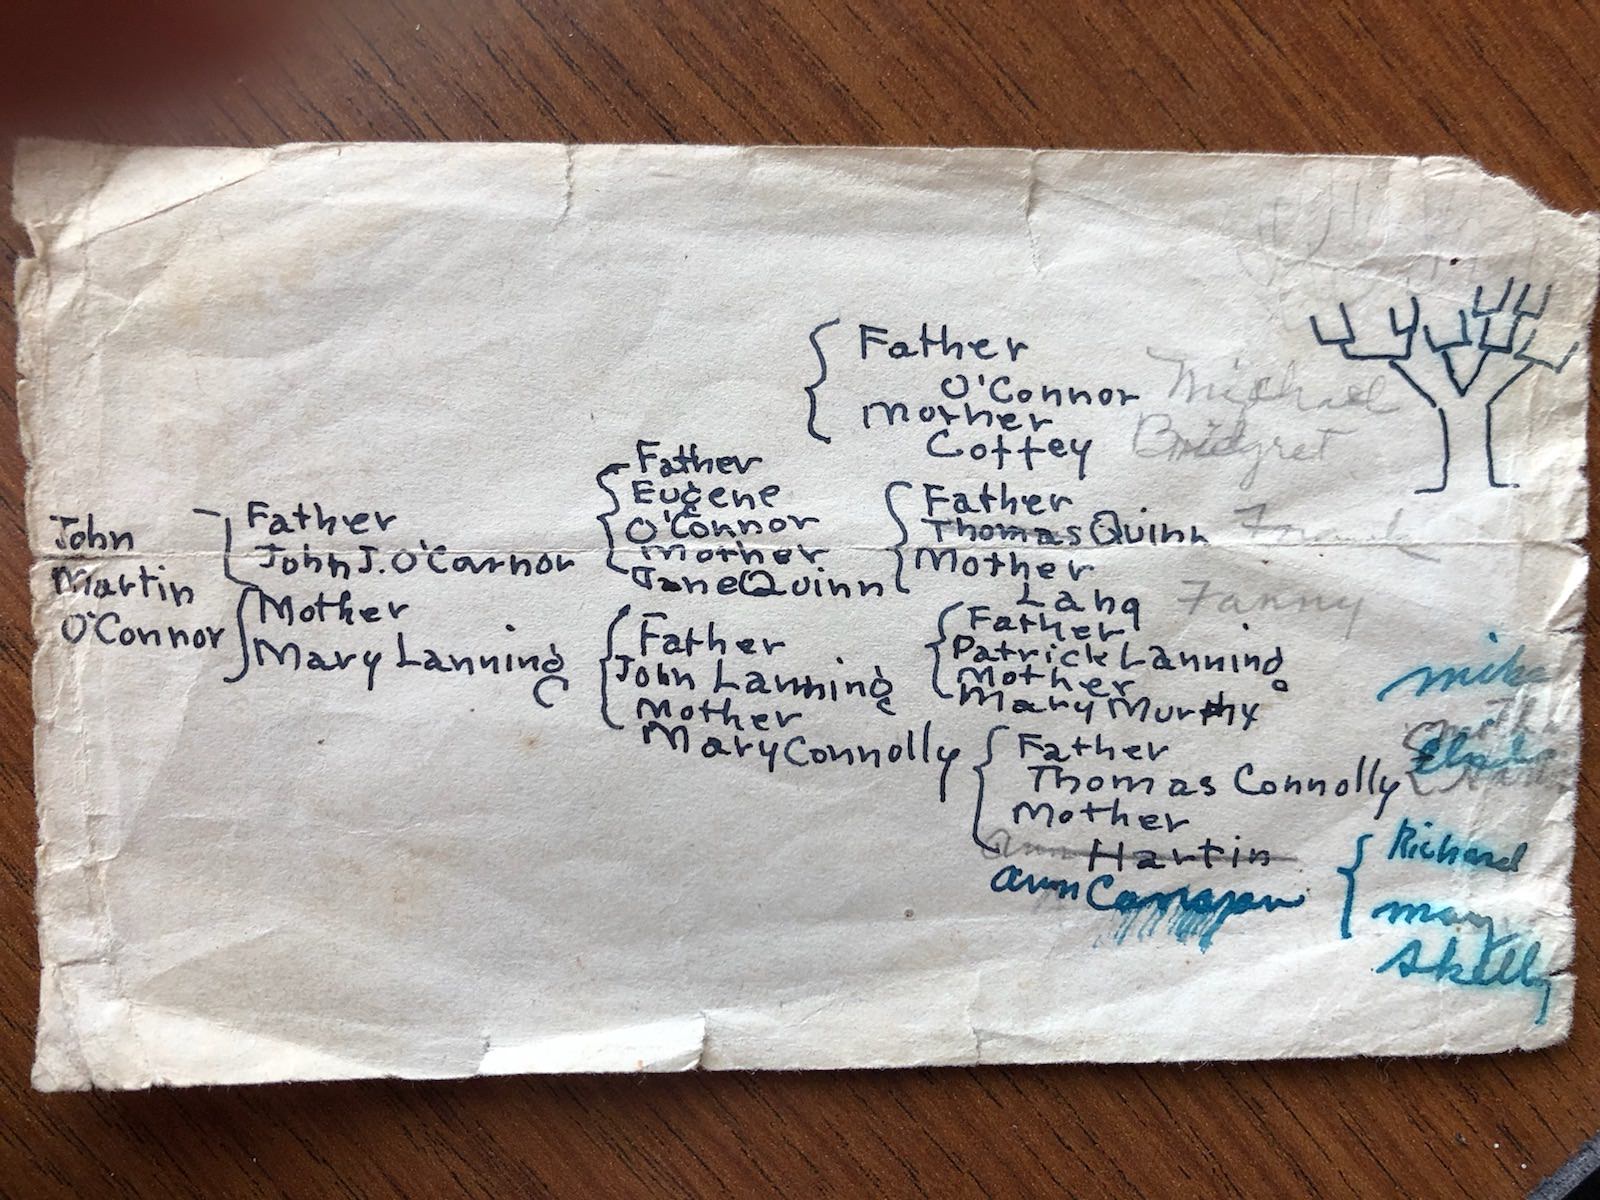 John
Martin
O'Connor
Father
John J. O'Connor
Mother
Mary Lanning
Father
Eugene
O'Connor
Mother
Jane Quinn
Father
John Lanning
Mother
Mary Connolly
Father
O'Connor Michael
Mother
Coffey Bridgret
Father
Thomas Quinn Frank
Mother
Lang Fanny
Father
Patrick Lanning
Mother
Mary Murphy
Father
Thomas Connolly
Mother
Ann Hartin
Ann
Mike
Richard
Mary
Skelly